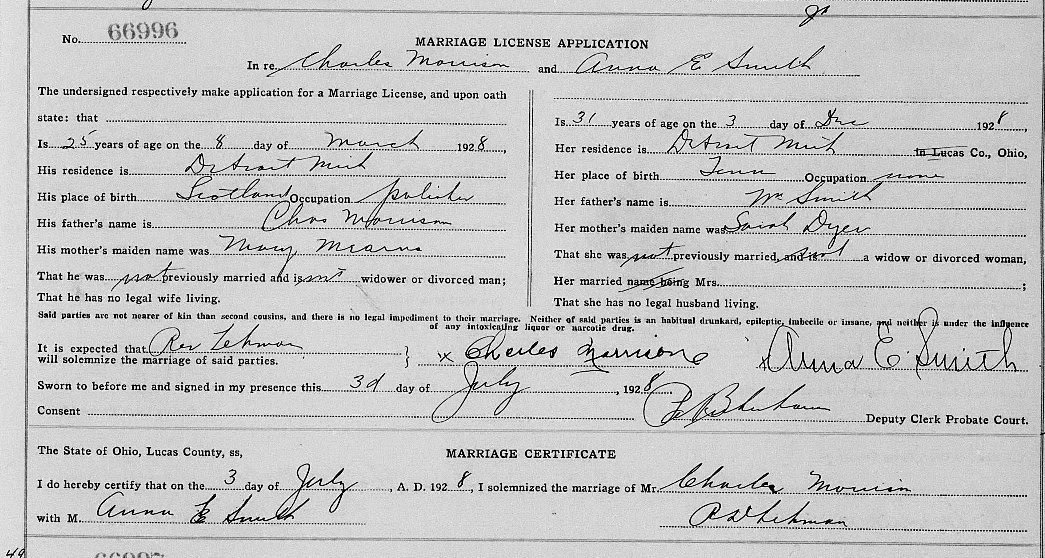 No. 66996
MARRIAGE LICENSE APPLICATION
In re Charles Morrison and Anna E Smith
The undersigned respectively make application for a Marriage License, and upon oath
state: that
Is 25 years of age on the 8 day of March 1928,
His residence is Detroit Mich
His place of birth Scotland Occupation polisher
His father's name is Chas Morrison
His mother's maiden name was Mary Mearns
That he was not previously married and is not widower or divorced man;
That he has no legal wife living.
Is 31 years of age on the 3 day of Dec 1928,
Her residence is Detroit Mich in Lucas Co., Ohio,
Her place of birth Tenn Occupation none
Her father's name is Wm Smith
Her mother's maiden name was Sarah Dyer
That she was not previously married, and is not a widow or divorced woman,
Her married name being Mrs. ;
That she has no legal husband living.
Said parties are not nearer of kin than second cousins, and there is no legal impediment to their marriage. Neither of said parties is an habitual drunkard, epileptic, imbecile or insane, and neither is under the influence
of any intoxicating liquor or narcotic drug.
It is expected that Rev Lehman
will solemnize the marriage of said parties.
x Charles Morrison x Anna E. Smith
Sworn to before me and signed in my presence this 3d day of July, 1928
Consent Deputy Clerk Probate Court.
The State of Ohio, Lucas County, ss,
MARRIAGE CERTIFICATE
I do hereby certify that on the 3 day of July, A. D. 1928, I solemnized the marriage of Mr. Charles Morrison
with M. Anna E Smith Lehman
66997